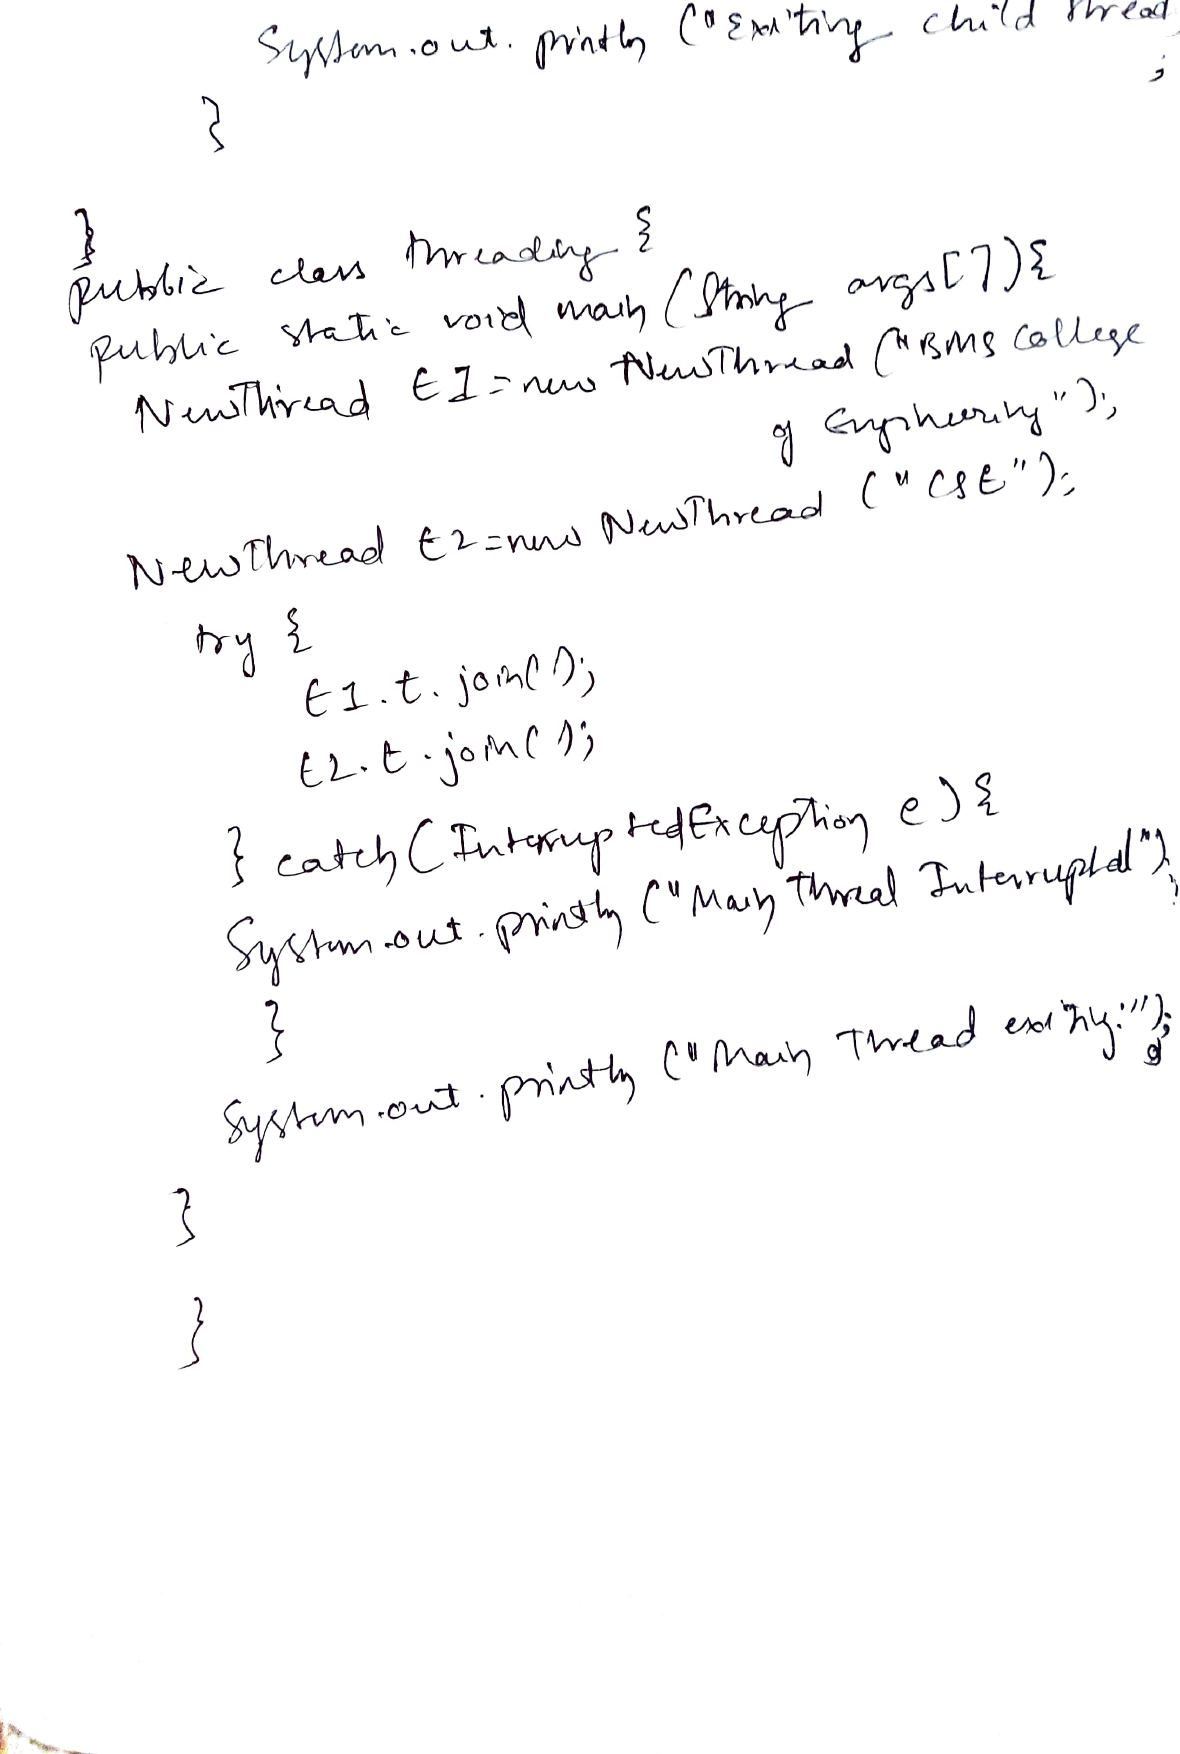 System.out.println("Exiting child thread
;
}
}
public class threading {
public static void main (String args[]){
NewThread t1 = new NewThread ("BMS College
of Engineering");
NewThread t2 = new NewThread ("CSE");
try {
t1.t.join();
t2.t.join();
} catch (InterruptedException e) {
System.out.println ("Main thread Interrupted");
}
System.out.println ("Main Thread exiting.");
}
}